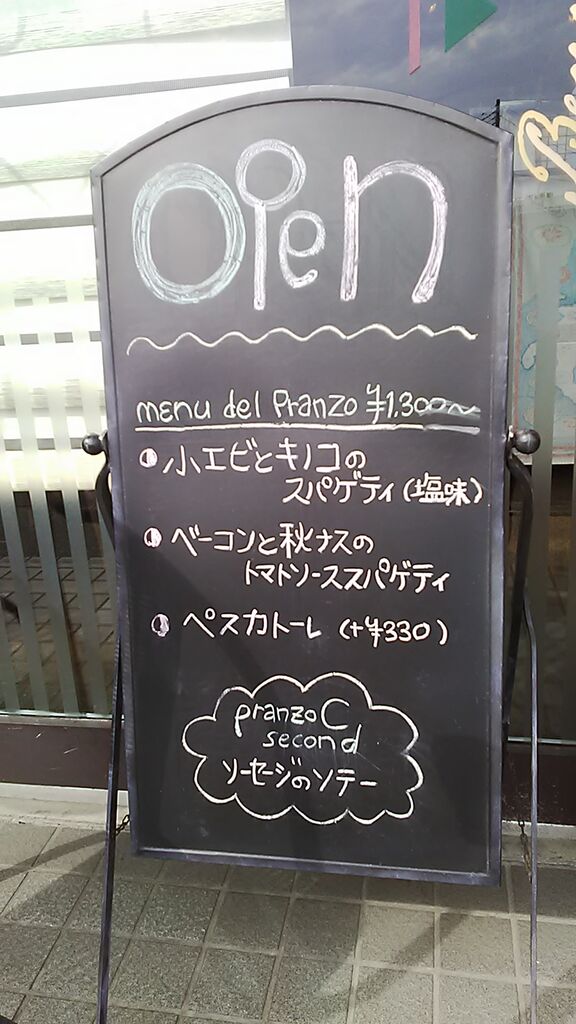 Open
menu del Pranzo ¥1.300~
小エビとキノコの
スパゲティ(塩味)
ベーコンと秋ナスの
トマトソーススパゲティ
ペスカトーレ (+¥330)
pranzo C
second
ソーセージのソテー